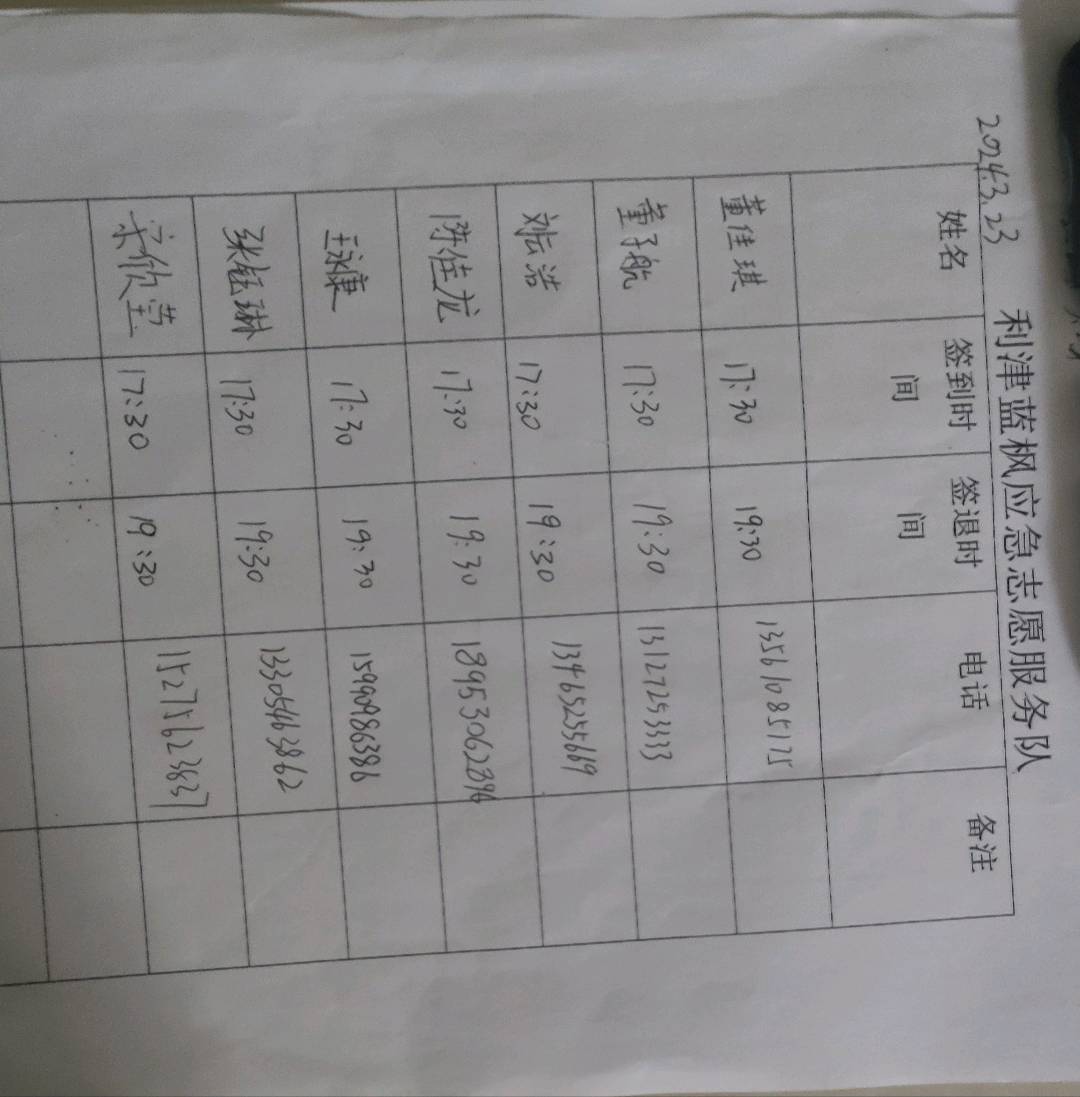 2024.3.23
利津蓝枫应急志愿服务队
姓名 签到时间 签退时间 电话 备注
董佳琪 17:30 19:30 13561085125
童子航 17:30 19:30 13127253333
刘云浩 17:30 19:30 13465255669
陈佳龙 17:30 19:30 18953062896
王永康 17:30 19:30 15990986386
张铉琳 17:30 19:30 13305463862
宋欣莹 17:30 19:30 15275623837